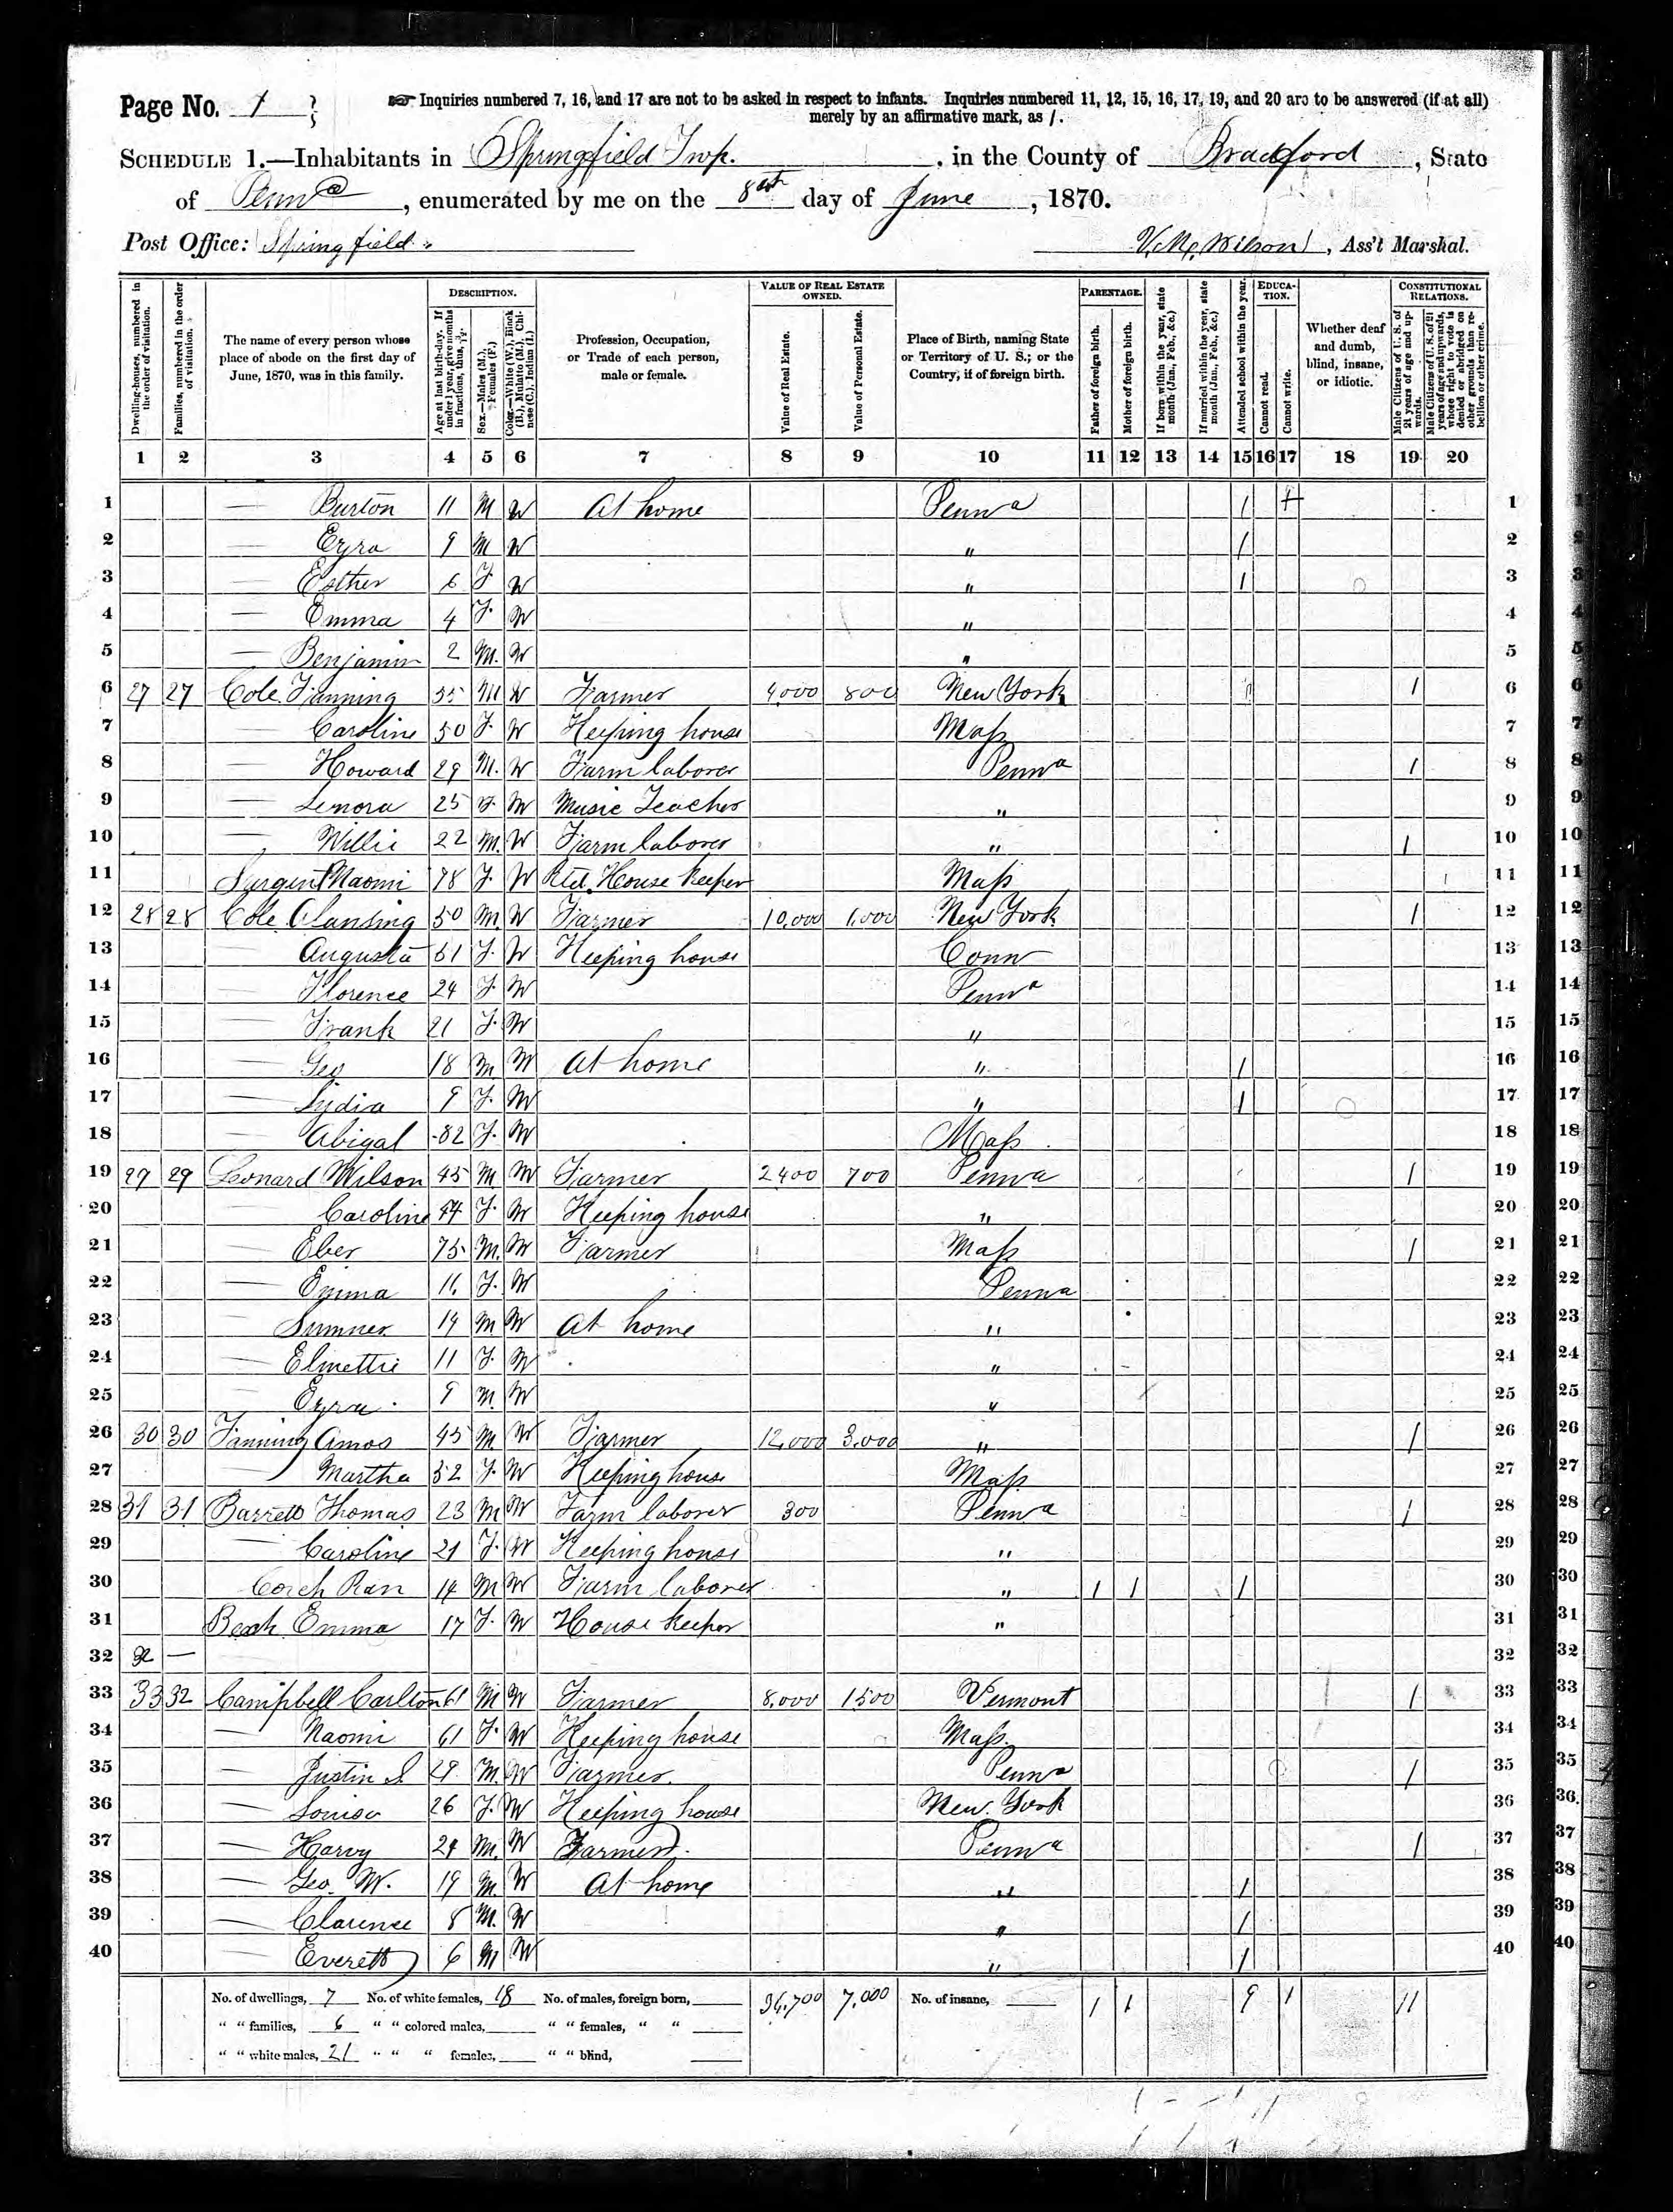 Page No. 1
Inquiries numbered 7, 16, and 17 are not to be asked in respect to infants. Inquiries numbered 11, 12, 15, 16, 17, 19, and 20 are to be answered (if at all)
merely by an affirmative mark, as /.
SCHEDULE 1.—Inhabitants in Springfield Twp., in the County of Bradford, State
of Penna, enumerated by me on the 8th day of June, 1870.
Post Office: Springfield. Wilson, Ass't Marshal.
Dwelling-houses, numbered in the order of visitation.
Families, numbered in the order of visitation.
The name of every person whose place of abode on the first day of June, 1870, was in this family.
DESCRIPTION.
Age at last birth-day. If under 1 year, give months in fractions, thus, 3/12.
Sex.—Males (M.), Females (F.)
Color.—White (W.), Black (B.), Mulatto (M.), Chinese (C.), Indian (I.)
Profession, Occupation, or Trade of each person, male or female.
VALUE OF REAL ESTATE OWNED.
Value of Real Estate.
Value of Personal Estate.
Place of Birth, naming State or Territory of U. S.; or the Country, if of foreign birth.
PARENTAGE.
Father of foreign birth.
Mother of foreign birth.
If born within the year, state month (Jan., Feb., &c.)
If married within the year, state month (Jan., Feb., &c.)
Attended school within the year.
EDUCATION.
Cannot read.
Cannot write.
Whether deaf and dumb, blind, insane, or idiotic.
CONSTITUTIONAL RELATIONS.
Male Citizens of U. S. of 21 years of age and upwards.
Male Citizens of U. S. of 21 years of age and upwards, whose right to vote is denied or abridged on other grounds than rebellion or other crime.
1 2 3 4 5 6 7 8 9 10 11 12 13 14 15 16 17 18 19 20
1 — Burton 11 M W At home Penna / + 1
2 — Ezra 9 M W " / 2
3 — Esther 6 F W " / 3
4 — Emma 4 F. W " 4
5 — Benjamin 2 M. W " 5
6 27 27 Cole Fanning 55 M W Farmer 4,000 800 New York / 6
7 — Caroline 50 F. W Keeping house Mass 7
8 — Howard 29 M. W Farm laborer Penna / 8
9 — Lenora 25 F. W Music Teacher " 9
10 — Willie 22 M. W Farm laborer " / 10
11 Sargent Naomi 78 F. W Ret'd. House Keeper Mass 11
12 28 28 Cole Clansing 50 M. W Farmer 10,000 1,000 New York / 12
13 — Augusta 51 F. W Keeping house Conn 13
14 — Florence 24 F. W Penna 14
15 — Frank 21 F. W " 15
16 — Geo 18 M W At home " / 16
17 — Lydia 9 F. W " / 17
18 — Abigal 82 F. W Mass 18
19 29 29 Leonard Wilson 45 M W Farmer 2400 700 Penna / 19
20 — Caroline 44 F. W Keeping house " 20
21 — Eber 75 M. W Farmer Mass / 21
22 — Emma 11 F. W Penna 22
23 — Sumner 14 M W At home " 23
24 — Elmettie 11 F. W " 24
25 — Ezra 9 M. W " 25
26 30 30 Fanning Amos 45 M. W Farmer 12,000 3,000 " / 26
27 — Martha 52 F. W Keeping house Mass 27
28 31 31 Barrett Thomas 23 M W Farm laborer 300 Penna / 28
29 — Caroline 21 F. W Keeping house " 29
30 14 M W Farm laborer " / / / 30
31 Emma 17 F. W House Keeper " 31
32 32 — 32
33 33 32 Campbell Carlton 61 M W Farmer 8,000 1500 Vermont / 33
34 — Naomi 61 F. W Keeping house Mass. 34
35 — Justin S 29 M. W Farmer. Penna / 35
36 — Louisa 26 F. W Keeping house New York 36
37 — Harvy 24 M. W Farmer Penna / 37
38 — Geo. W. 19 M. W At home " / 38
39 — Clarence 8 M. W " / 39
40 — Everett 6 M W " / 40
No. of dwellings, 7 No. of white females, 18 No. of males, foreign born, 36,700 7,000 No. of insane, 1 1 9 1 11
" " families, 6 " " colored males, " " females, " "
" " white males, 21 " " " females, " " blind,